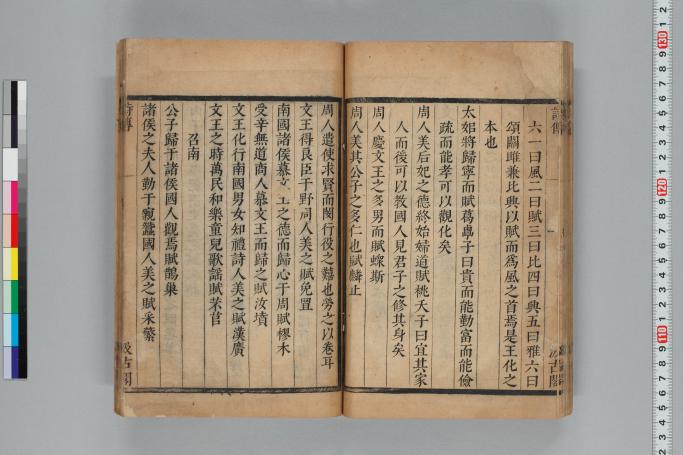 六一曰風二曰賦三曰比四曰興五曰雅六曰
頌關雎兼比興以賦而爲風之首焉是王化之
本也
太姒將歸寧而賦葛覃子曰貴而能勤富而能儉
疏而能孝可以觀化矣
周人美后妃之德終始婦道賦桃夭子曰宜其家
人而後可以教國人見君子之修其身矣
周人慶文王之多男而賦螽斯
周人美其公子之多仁也賦麟止
周人遣使求賢而閔行役之艱也勞之以卷耳
文王得良臣于野詞人美之賦兔罝
南國諸侯慕文王之德而歸心于周賦樛木
受辛無道商人慕文王而歸之賦汝墳
文王化行南國男女知禮詩人美之賦漢廣
文王之時萬民和樂童兒歌謡賦芣苢
召南
公子歸于諸侯國人觀焉賦鵲巢
諸侯之夫人勤于親蠶國人美之賦采蘩
詩傳
汲古閣